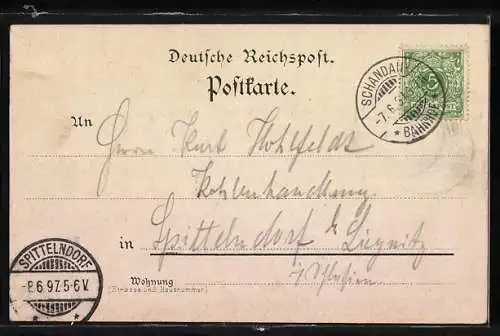 Deutsche Reichspost.
Postkarte.
SCHANDAU
-7.6.97
* BAHNHOF *
5
An
Herrn Kurt Hohlfeldt
Kohlenhandlung
in Spittelndorf b. Liegnitz
i/Schlesien
Wohnung
(Strasse und Hausnummer)
SPITTELNDORF
-8.6.97.5-6V.
* *